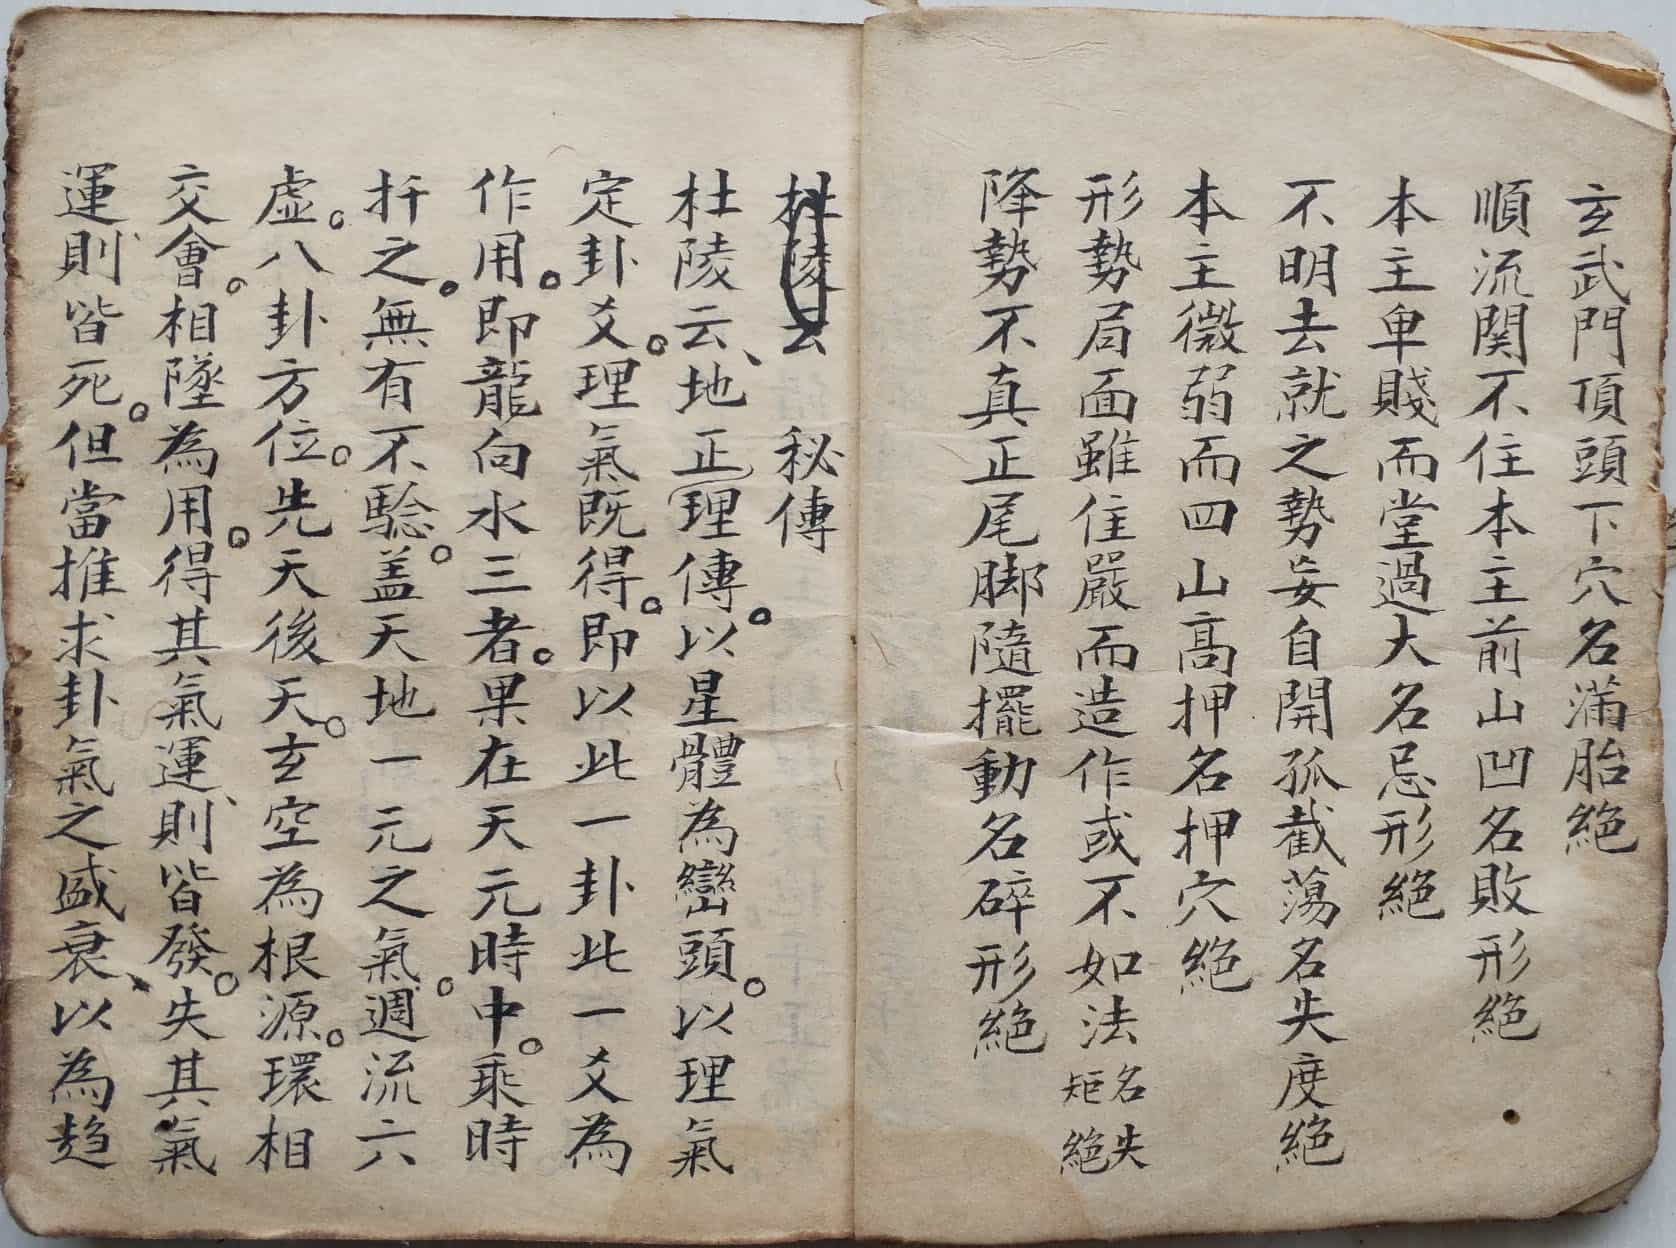 玄武門頂頭下穴名滿胎絕
順流関不住本主前山凹名敗形絕
本主卑賤而堂過大名忌形絕
不明去就之勢妄自開孤截蕩名失度絕
本主微弱而四山高押名押穴絕
形勢局面雖住嚴而造作或不如法名失矩絕
降勢不真正尾脚隨擺動名碎形絕
杜陵云秘傳
杜陵云、地正理傳。以星體為巒頭。以理氣
定卦爻。理氣既得。即以此一卦此一爻為
作用。即龍向水三者。果在天元時中。乘時
扦之。無有不驗。盖天地一元之氣。週流六
虛。八卦方位。先天後天。玄空為根源。環相
交會。相墜為用。得其氣運、則皆發。失其氣
運、則皆死。但當推求卦氣之盛衰、以為趋